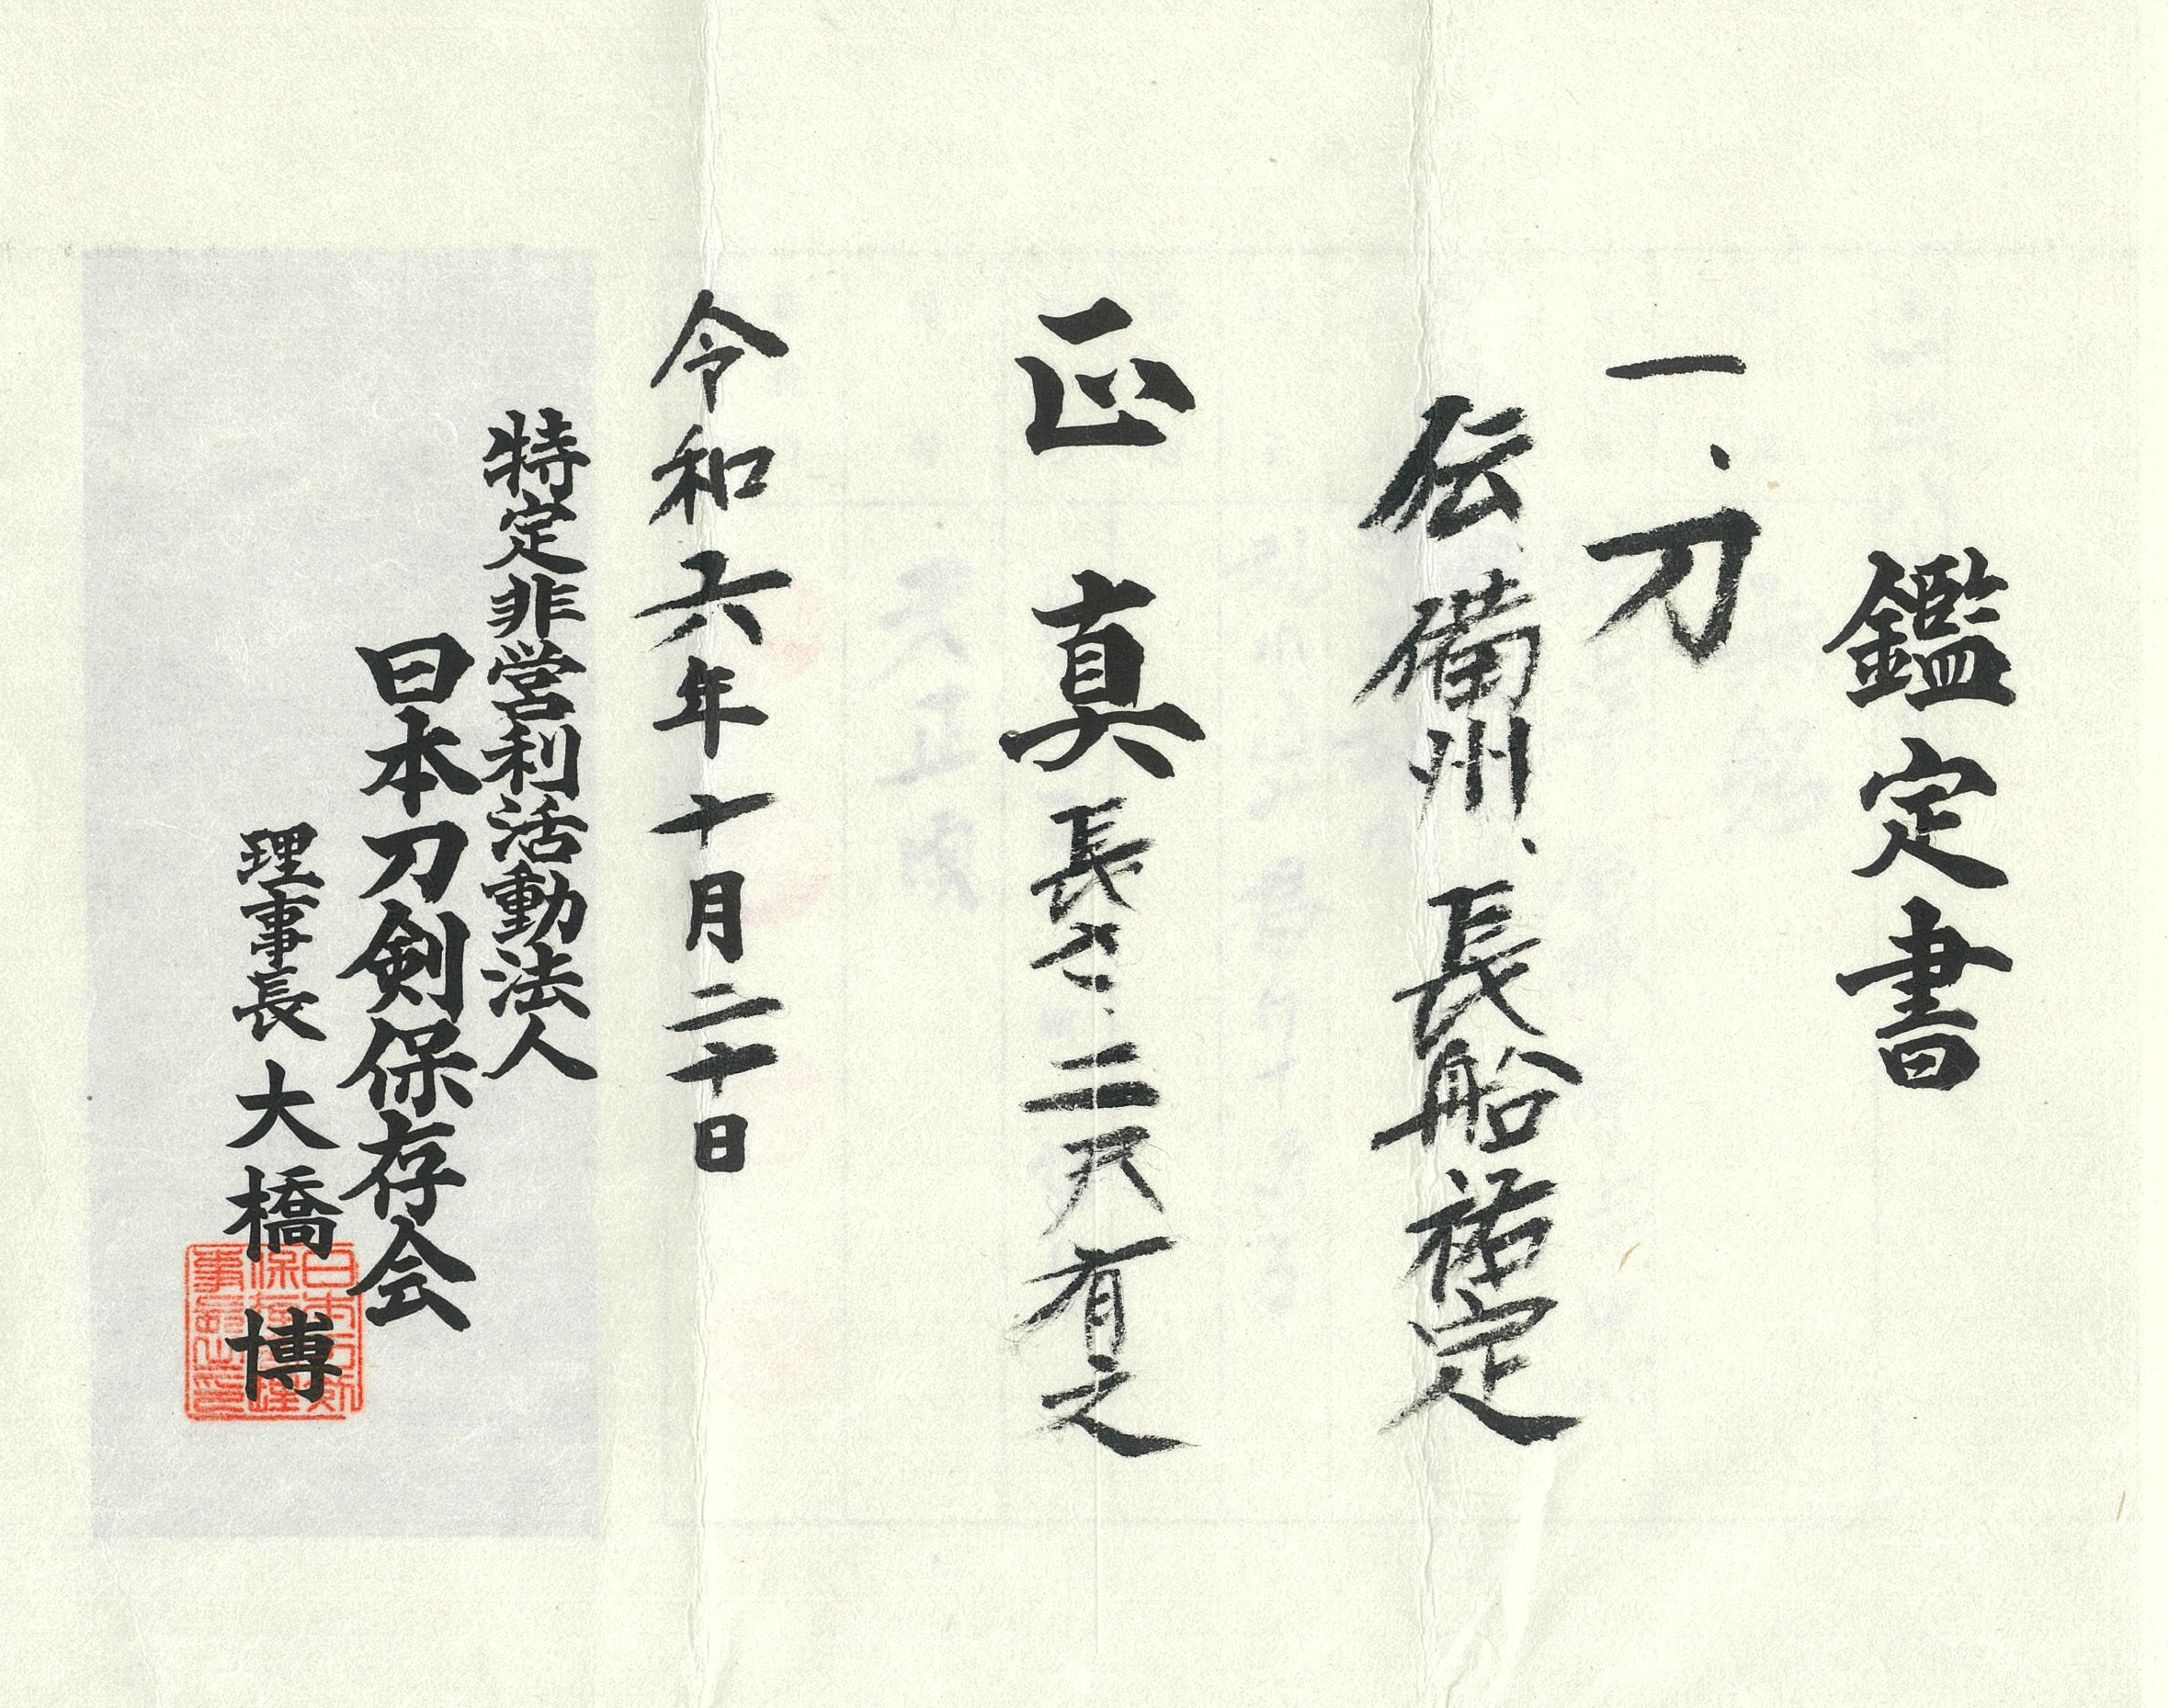 鑑定書
一、刀
伝備州、長船祐定
正真
長さ、二尺有之
令和六年十月二十日
特定非営利活動法人
日本刀剣保存会
理事長 大橋 博